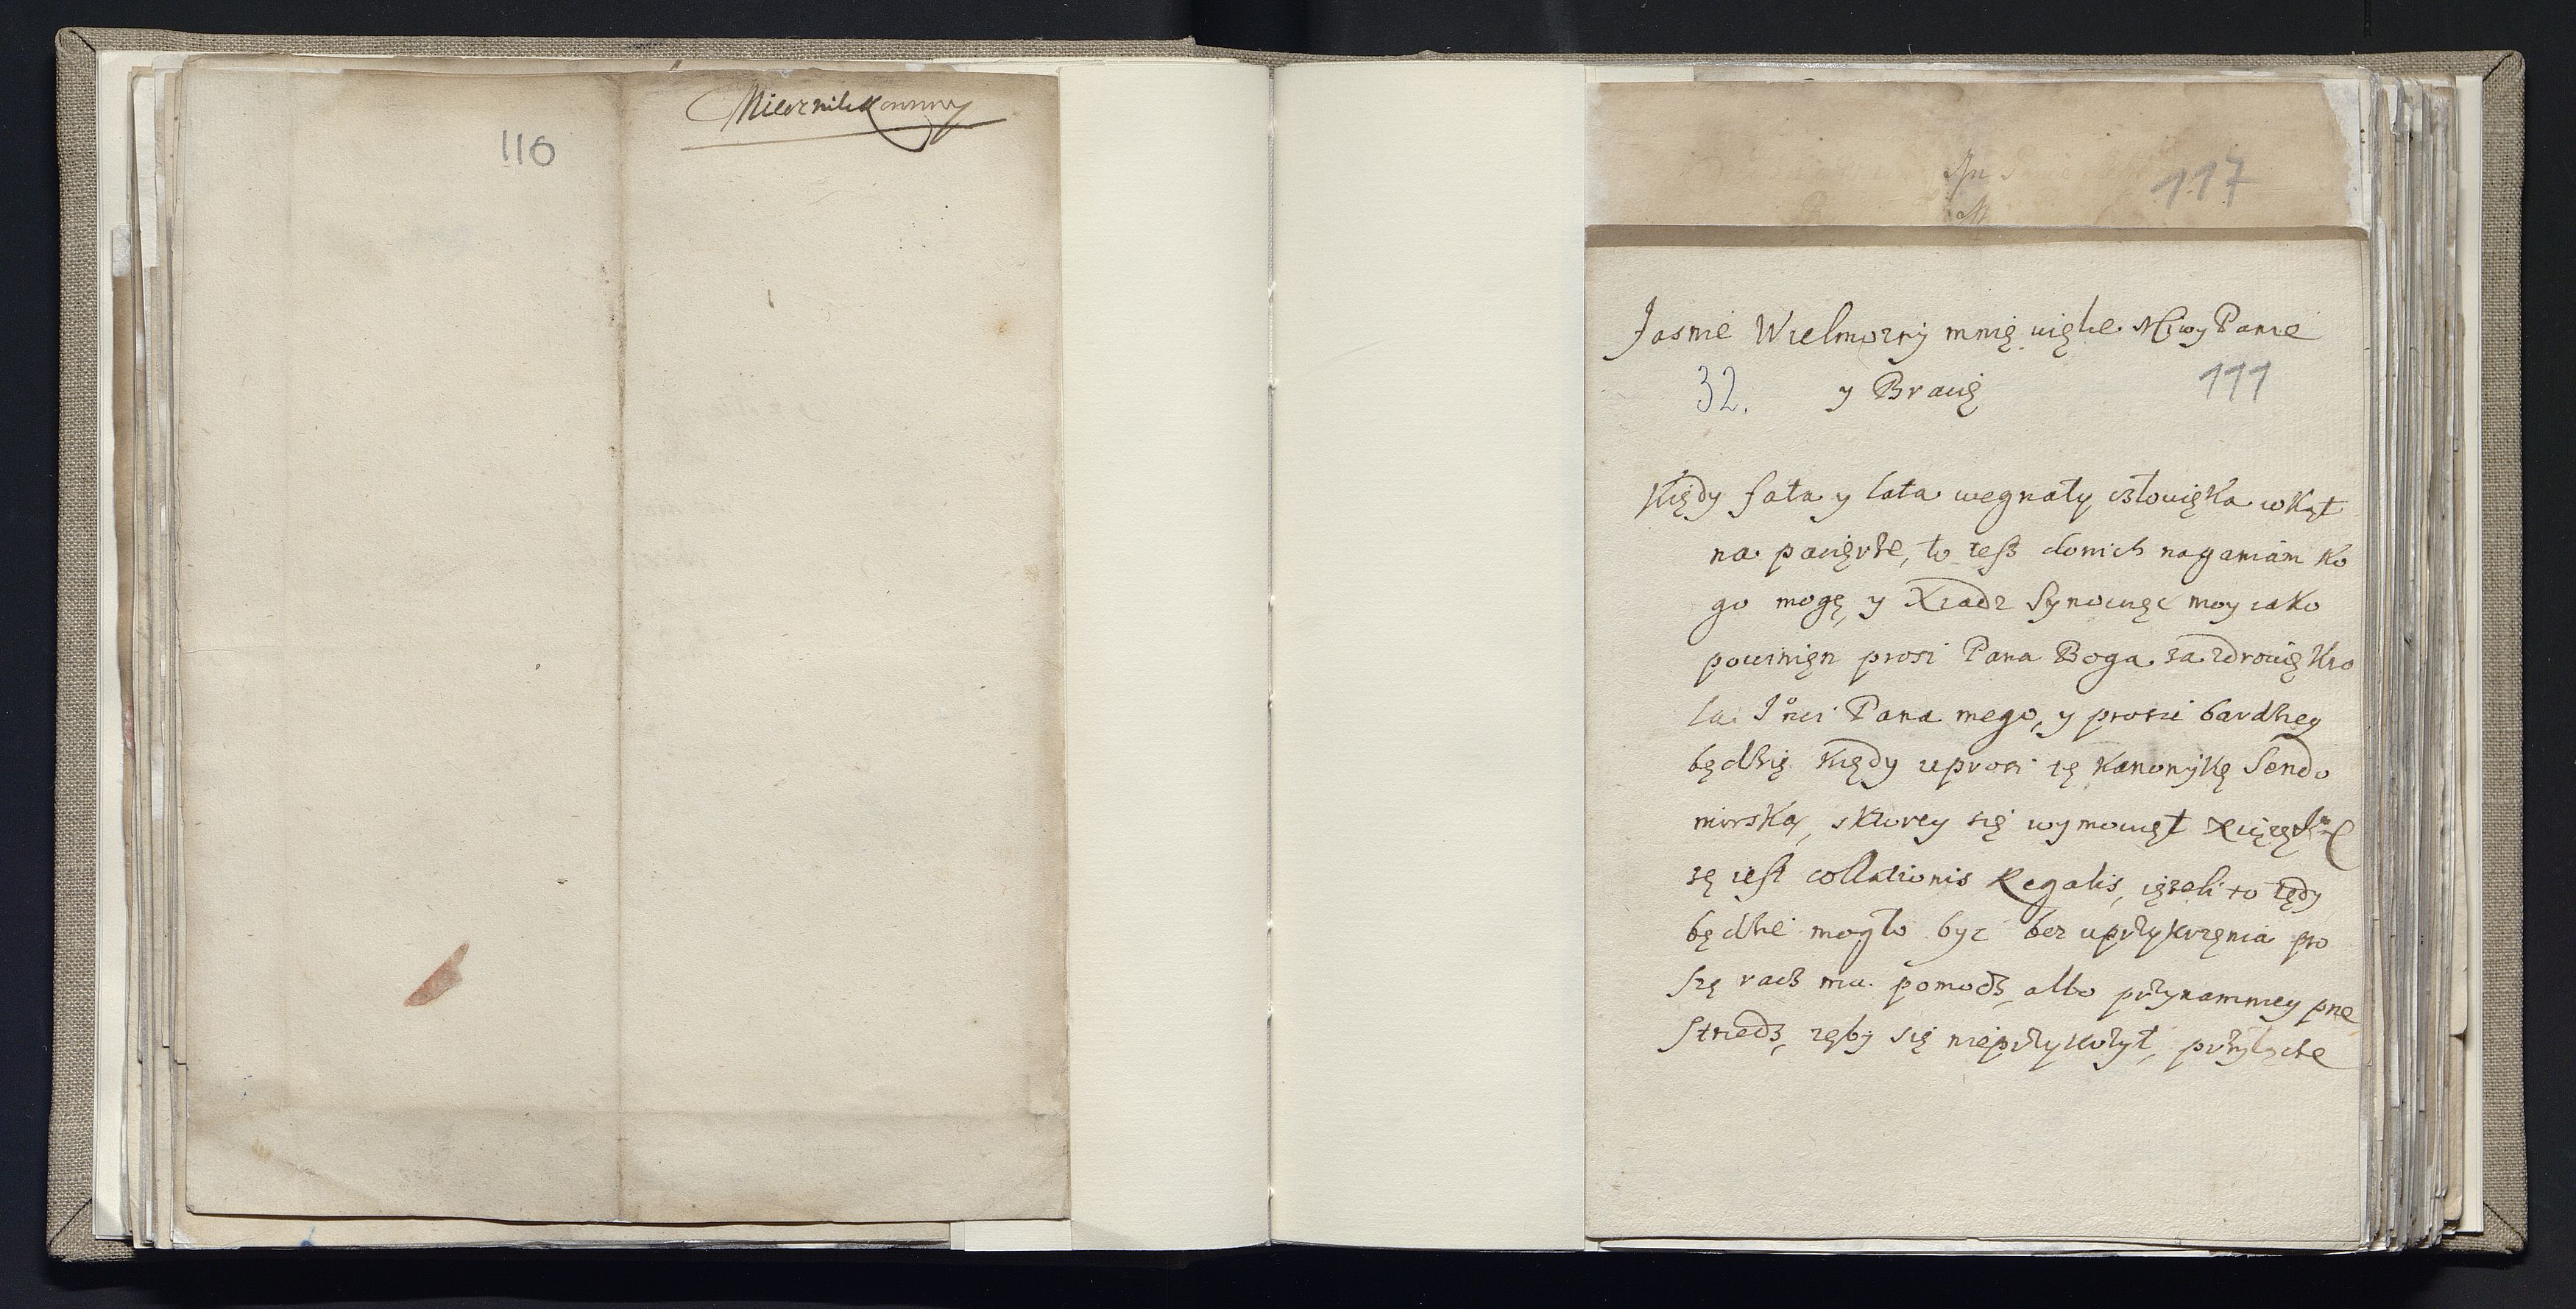 110
117
Jasnie Wielmozny mnię więlce Mćiwy Panie
32. y Bracię 111
Kiędy fata y lata wegnały człowięka w Kąt
na pacięrze, to tesz do nich naganiam ko
go mogę, y Xiadz Synowięc moy iako
powinięn prosi Pana Boga za zdrowię Kro
la Jmći Pana mego, y prosić bardziey
będzię kiędy uprosi tę Kanonijkę Sendo
mirską, s ktorey się wymowięł
tę iest collationis Regalis, ięzeli to tędy
będzie mogło byc bez uprzykrzęnia pro
szę racz mu pomodz, albo przynamniey prze
strzedz, zęby się nieprzykrzył, przytęche